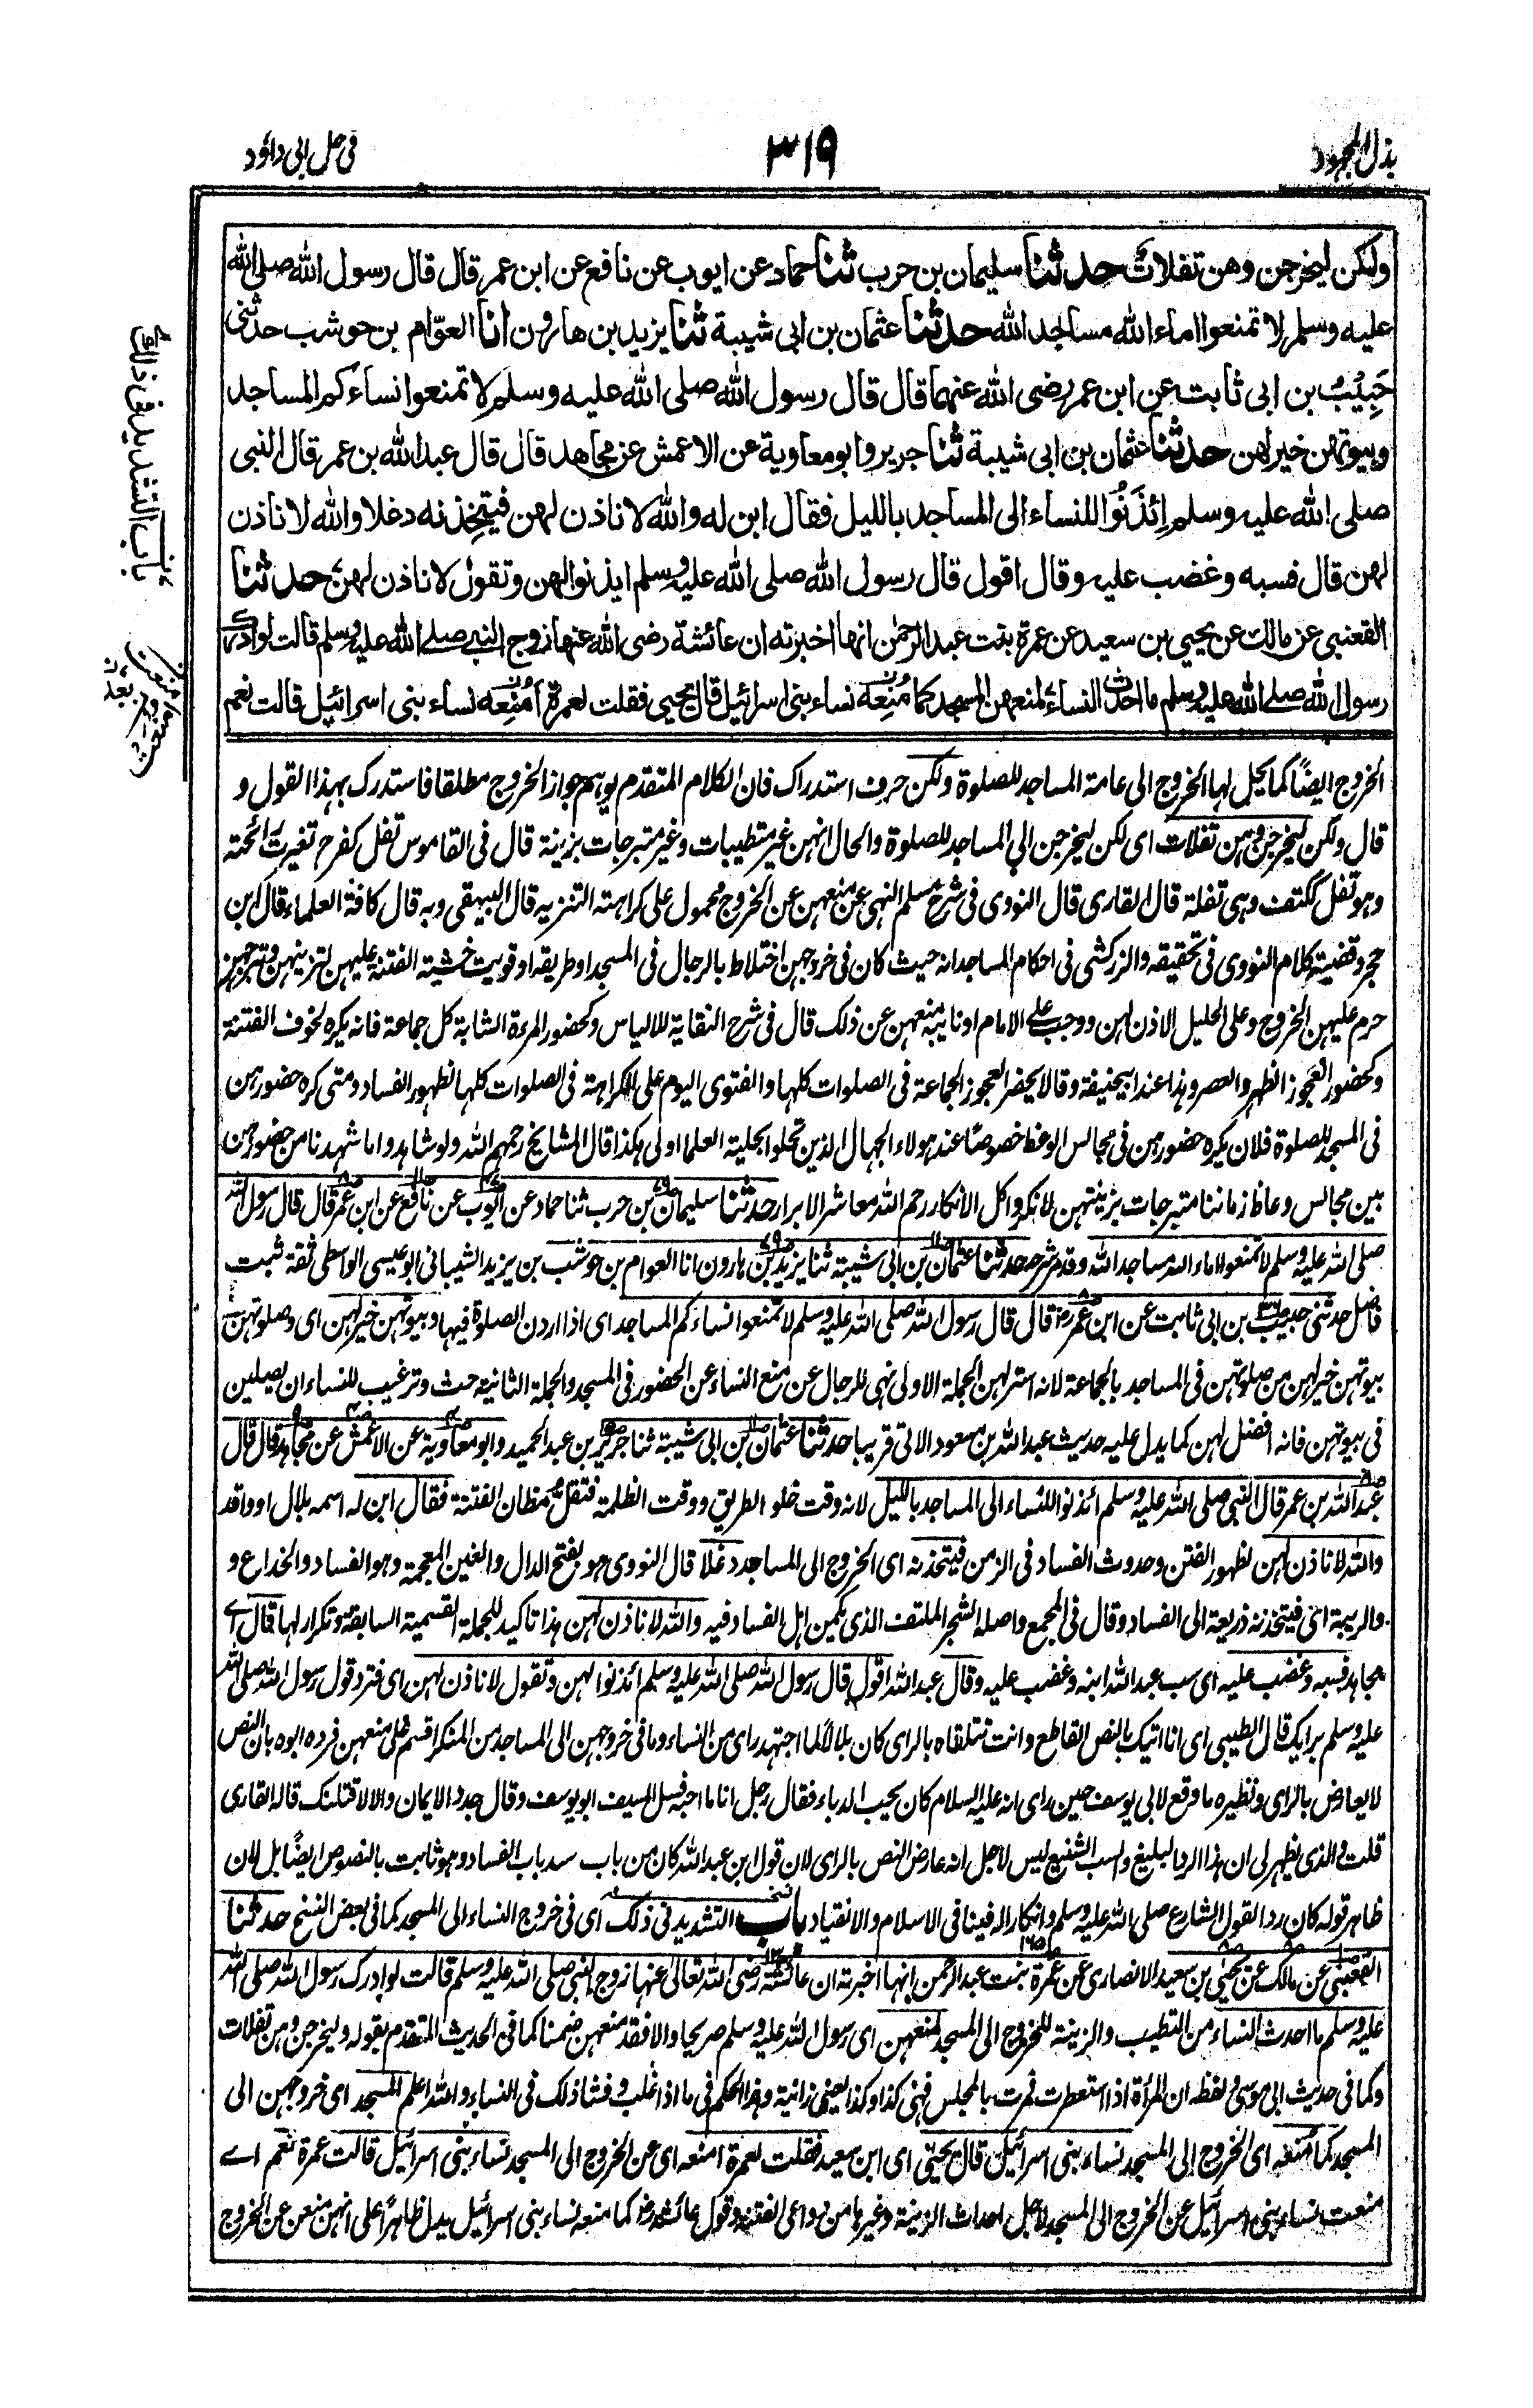 بذل المجهود
٣١٩
في حل ابي داؤد
ولكن ليخرجن وهن تفلات حدثنا سليمان بن حرب ثنا حماد عن ايوب عن نافع عن ابن عمر قال قال رسول الله صلى الله
عليه وسلم لا تمنعوا اماء الله مساجد الله حدثنا عثمان بن ابى شيبة ثنا يزيد بن هارون انا العوّام بن حوشب حدثنى
حَبِيْبُ بن ابى ثابت عن ابن عمر رضى الله عنهما قال قال رسول الله صلى الله عليه وسلم لا تمنعوا نساءكم المساجد
وبيوتهن خير لهن حدثنا عثمان بن ابى شيبة ثنا جرير وابو معاوية عن الاعمش عن مجاهد قال قال عبد الله بن عمر قال النبى
صلى الله عليه وسلم اِئْذَنُوْا للنساء الى المساجد بالليل فقال ابن له والله لا ناذن لهن فيتخذنه دغلا والله لا ناذن
لهن قال فسبه وغضب عليه وقال اقول قال رسول الله صلى الله عليه وسلم ايذنوا لهن وتقول لا ناذن لهن حدثنا
القعنبى عن مالك عن يحيى بن سعيد عن عمرة بنت عبد الرحمن انها اخبرته ان عائشة رضى الله عنها زوج النبى صلى الله عليه وسلم قالت لو ادرك
رسول الله صلى الله عليه وسلم ما احدث النساء لمنعهن المسجد كما مُنِعَه نساء بنى اسرائيل قال يحيى فقلت لعمرة أمُنِعَه نساء بنى اسرائيل قالت نعم
باب التشديد فى ذلك
الخروج ايضًا كما يحل لها الخروج الى عامة المساجد للصلوة ولكن حرف استدراك فان الكلام المتقدم يوهم جواز الخروج مطلقا فاستدرك بهذا القول و
قال ولكن ليخرجن وهن تفلات اى لكن ليخرجن الى المساجد للصلوة والحال انهن غير متطيبات وغير متبرجات بزينة قال فى القاموس تفل كفرح تغيرت رائحته
وهو تفل ككتف وهى تفلة قال القارى قال النووى فى شرح مسلم النهى عن منعهن عن الخروج محمول على كراهته التنزيه قال البيهقى وبه قال كافة العلماء قال ابن
حجر وقضية كلام النووى فى تحقيقه والزركشى فى احكام المساجد انه حيث كان فى خروجهن اختلاط بالرجال فى المسجد او طريقه او قويت خشية الفتنة عليهن لتزينهن وتبرجهن
حرم عليهن الخروج وعلى الحليل الاذن لهن ووجب على الامام او نائبه منعهن عن ذلك قال فى شرح النقاية للالياس وكحضور المرءة الشابة كل جماعة فانه يكره لخوف الفتنة
وكحضور العجوز الظهر والعصر وهذا عند ابيحنيفة وقالا يحضر العجوز الجماعة فى الصلوات كلها والفتوى اليوم على الكراهة فى الصلوات كلها لظهور الفساد ومتى كره حضورهن
فى المسجد للصلوة فلان يكره حضورهن فى مجالس الوعظ خصوصًا عند هولاء الجهال الذين تحلوا بحلية العلما اولى هكذا قال المشايخ رحمهم الله ولو شاهدوا ما شهدنا من حضورهن
بين مجالس وعاظ زماننا متبرجات بزينتهن لانكروا كل الانكار رحم الله معاشر الابرار حدثنا سليمان بن حرب ثنا حماد عن ايوب عن نافع عن ابن عمر قال قال رسول الله
صلى الله عليه وسلم لا تمنعوا اماء الله مساجد الله وقد مر شرحه حدثنا عثمان بن ابى شيبة ثنا يزيد بن هارون انا العوام بن حوشب بن يزيد الشيبانى ابو عيسى الواسطى ثقة ثبت
فاضل حدثنى حبيب بن ابى ثابت عن ابن عمر رضـ قال قال رسول الله صلى الله عليه وسلم لا تمنعوا نساءكم المساجد اى اذا اردن الصلوة فيها وبيوتهن خير لهن اى وصلوتهن
بيوتهن خير لهن من صلوتهن فى المساجد بالجماعة لانه استر لهن الجملة الاولى نهى للرجال عن منع النساء عن الحضور فى المسجد والجملة الثانية حث وترغيب للنساء ان يصلين
فى بيوتهن فانه افضل لهن كما يدل عليه حديث عبد الله بن مسعود الاتى قريبا حدثنا عثمان بن ابى شيبة ثنا جرير بن عبد الحميد وابو معاوية عن الاعمش عن مجاهد قال قال
عبد الله بن عمر قال النبى صلى الله عليه وسلم ائذنوا للنساء الى المساجد بالليل لانه وقت خلو الطريق ووقت الظلمة فتقل مظان الفتنة فقال ابن له اسمه بلال او واقد
والله لا ناذن لهن لظهور الفتن وحدوث الفساد فى الزمن فيتخذنه اى الخروج الى المساجد دغلا قال النووى هو بفتح الدال والغين المعجمة وهو الفساد والخداع و
والريبة اى فيتخذنه ذريعة الى الفساد وقال فى المجمع واصله الشجر الملتف الذى يكمين اهل الفساد فيه والله لا ناذن لهن هذا تاكيد للجملة القسمية السابقة وتكرار لها قال اے
مجاهد فسبه وغضب عليه اى سب عبد الله ابنه وغضب عليه وقال عبد الله اقول قال رسول الله صلى الله عليه وسلم ائذنوا لهن وتقول لا ناذن لهن اى فترد قول رسول الله صلى الله
عليه وسلم برايك قال الطيبى اى انا اتيك بالنص القاطع وانت تتلقاه بالراى كان بلالا لما اجتهد راى من النساء وما فى خروجهن الى المساجد من المنكر اقسم على منعهن فرده ابوه بان النص
لا يعارض بالراى ونظيره ما وقع لابى يوسف حين راى انه عليه السلام كان يحب الدباء فقال رجل انا ما احبه فسل السيف ابو يوسف وقال جدد الايمان والا لاقتلنك قاله القارى
قلت والذى يظهر لى ان هذا الرد البليغ والسب الشنيع ليس لاجل انه عارض النص بالراى لان قول ابن عبد الله كان من باب سد باب الفساد وهو ثابت بالنصوص ايضًا بل لان
ظاهر قوله كان رد القول الشارع صلى الله عليه وسلم وانكارا له فينافى الاسلام والانقياد باب التشديد فى ذلك اى فى خروج النساء الى المسجد كما فى بعض النسخ حدثنا
القعنبى عن مالك عن يحيى بن سعيد الانصارى عن عمرة بنت عبد الرحمن انها اخبرته ان عائشة رضى الله تعالى عنها زوج النبى صلى الله عليه وسلم قالت لو ادرك رسول الله صلى الله
عليه وسلم ما احدث النساء من التطيب والزينة للخروج الى المسجد لمنعهن اى رسول الله عليه وسلم صريحا والا فقد منعهن ضمنا كما فى الحديث المتقدم بقوله وليخرجن وهن تفلات
وكما فى حديث ابى موسى ولفظه ان المرأة اذا استعطرت فمرت بالمجلس فهى كذا وكذا يعنى زانية وهذا الحكم فى ما اذا غلب وفشا ذلك فى النساء والله اعلم المسجد اى خروجهن الى
المسجد كما مُنعه اى الخروج الى المسجد نساء بنى اسرائيل قال يحيى اى ابن سعيد فقلت لعمرة امنعه اى عن الخروج الى المسجد نساء بنى اسرائيل قالت عمرة نعم اے
منعت نساء بنى اسرائيل عن الخروج الى المسجد لاجل احداث الزينة وغيرها من دواعى الفتنة وقول عائشة رضـ كما منعه نساء بنى اسرائيل يدل ظاهرًا على انهن منعن عن الخروج